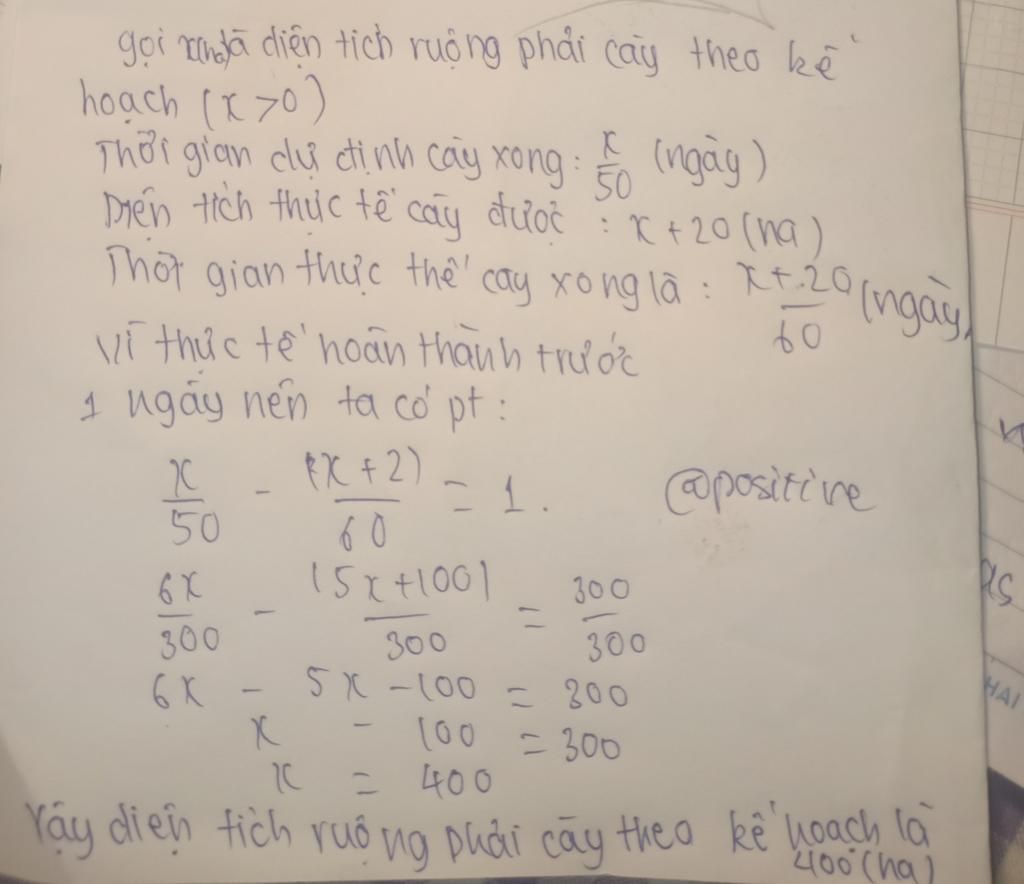 gọi x(ha) là diện tích ruộng phải cày theo kế
hoạch (x > 0)
Thời gian dự định cày xong: x/50 (ngày)
Diện tích thực tế cày được : x + 20 (ha)
Thời gian thực thế cày xong là : x + 20/60 (ngày)
Vì thực tế hoàn thành trước
1 ngày nên ta có pt :
x/50 - (x + 2)/60 = 1.
@positive
6x/300 - (5x + 100)/300 = 300/300
6x - 5x - 100 = 300
x - 100 = 300
x = 400
Vậy diện tích ruộng phải cày theo kế hoạch là
400 (ha)
HAI